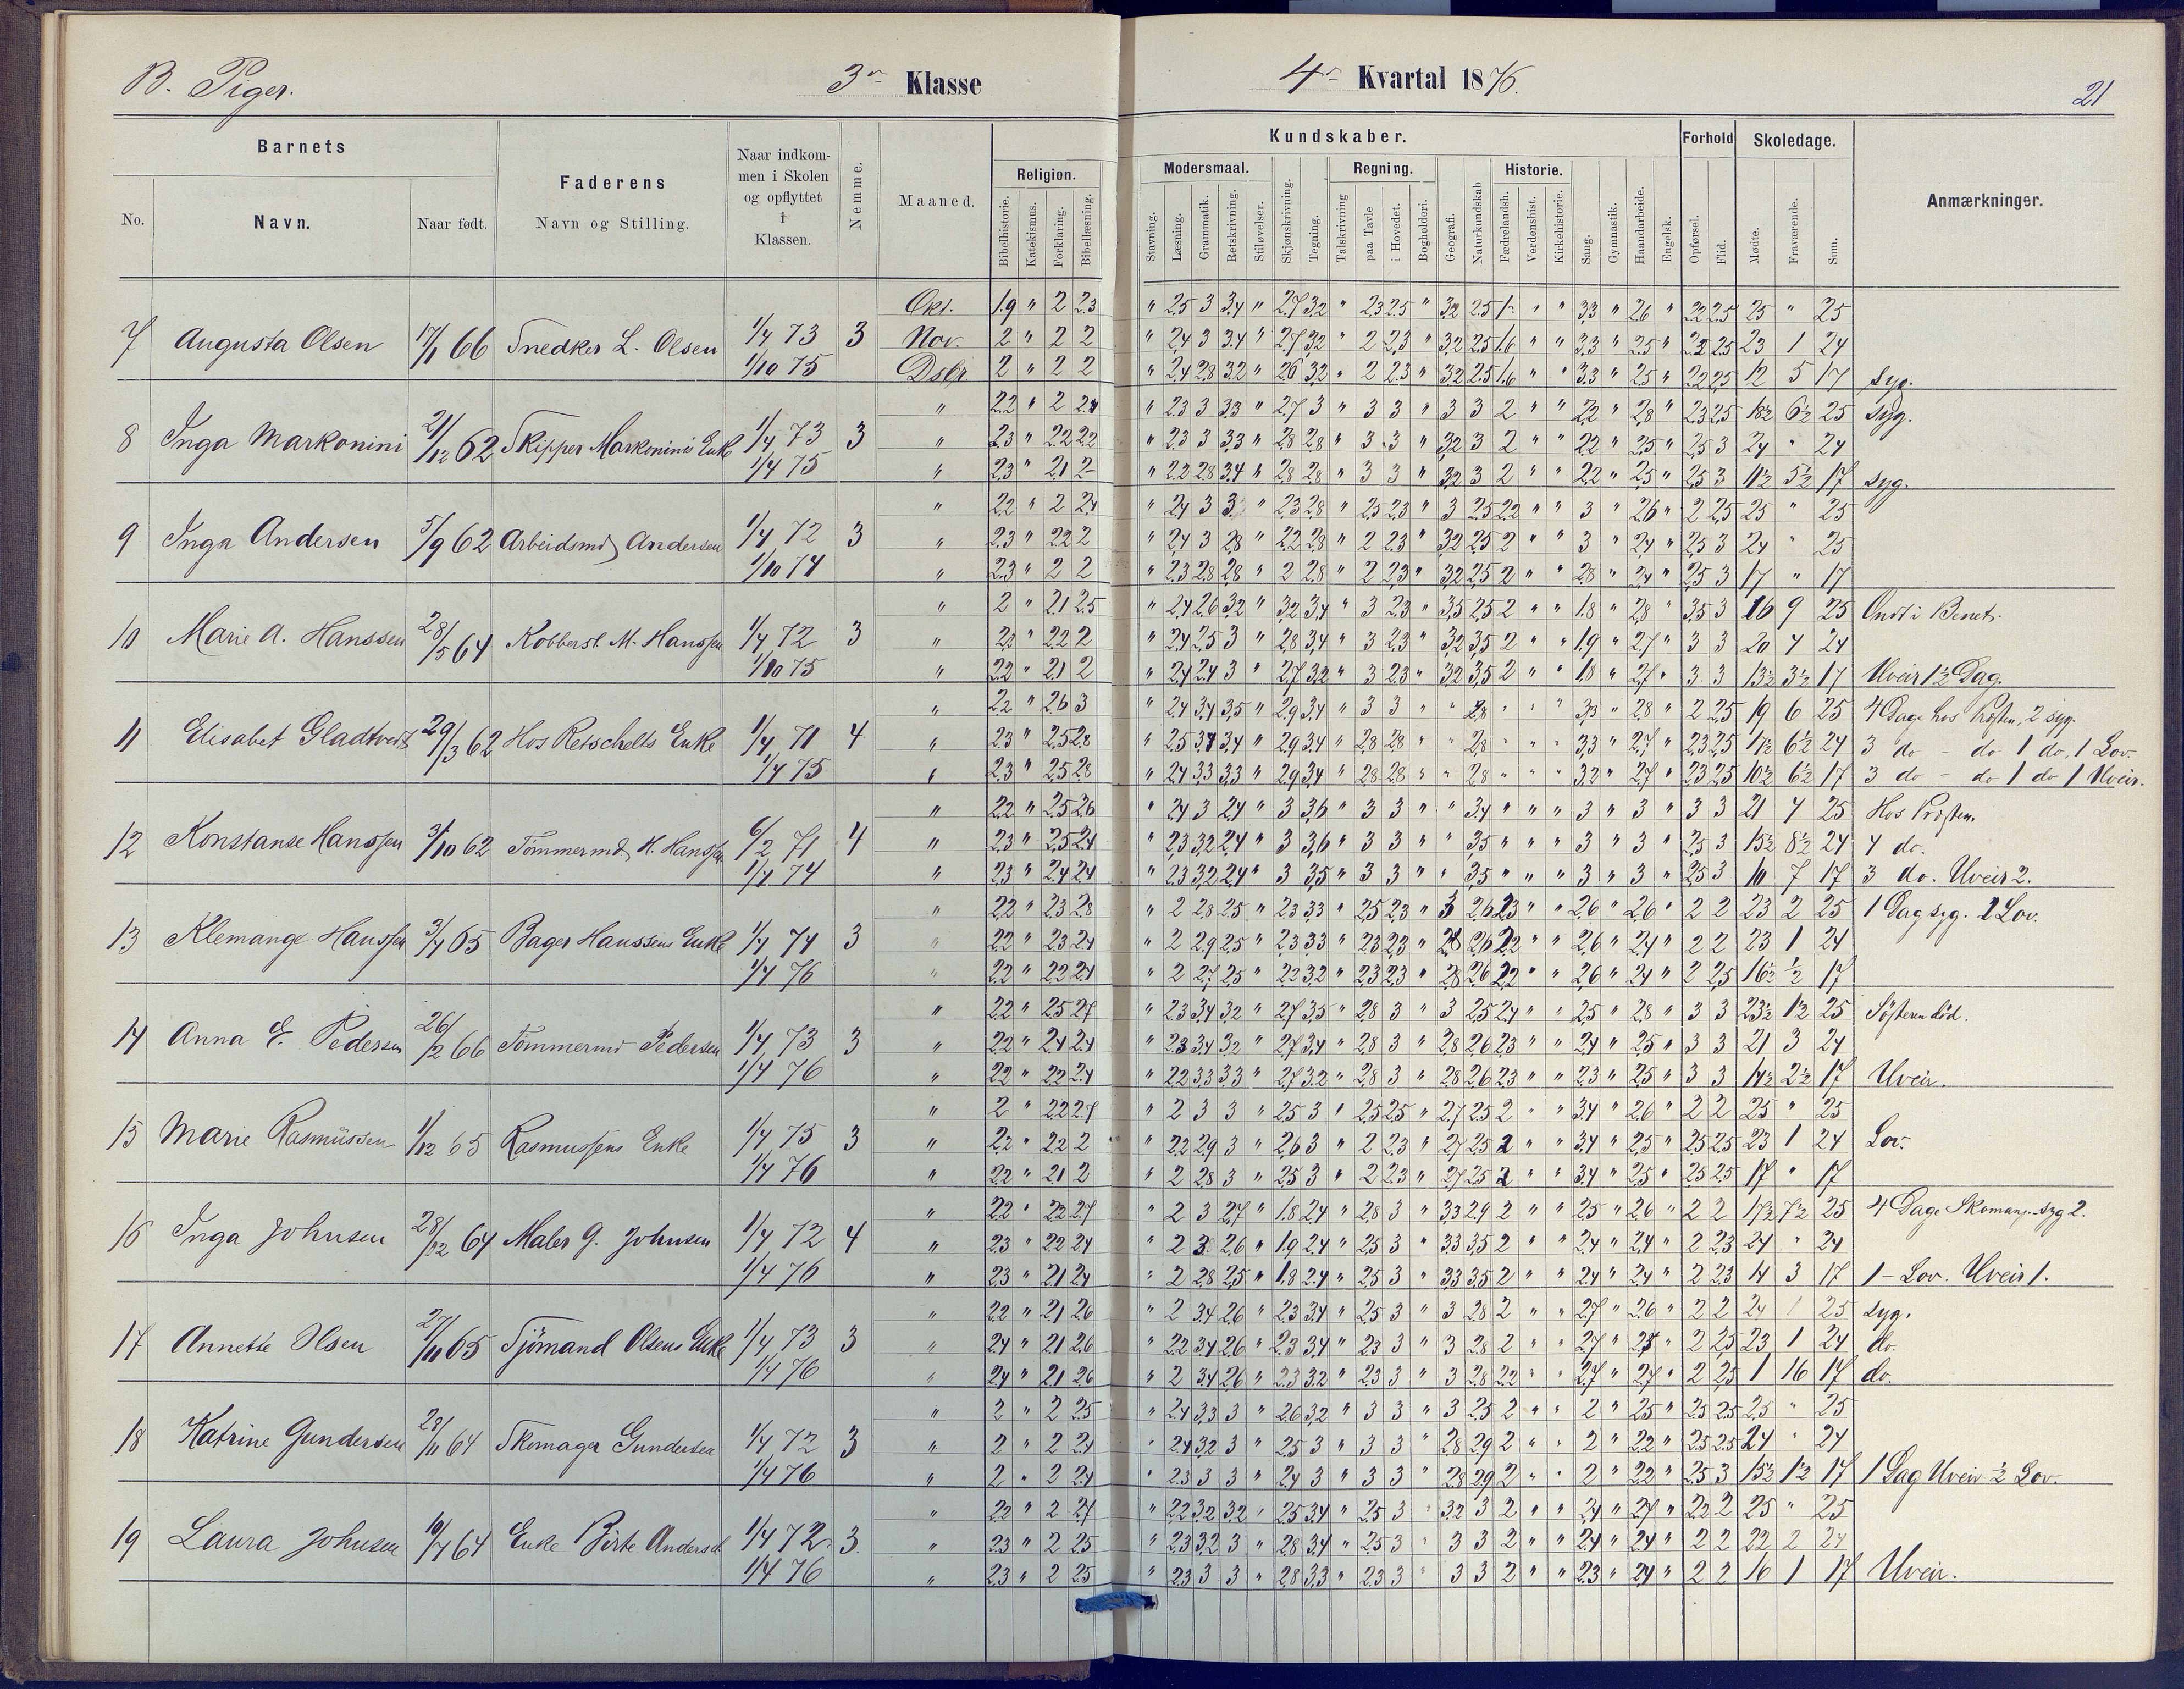 B. Piger. 3die Klasse 4de Kvartal 1876. 21
Barnets Kundskaber. Forhold Skoledage.
No. Navn. Naar født. Faderens Navn og Stilling. Naar indkommen i Skolen og opflyttet i Klassen. Nemme. Maaned. Religion. Modersmaal. Regning. Historie. Anmærkninger.
Bibelhistorie. Katekismus. Forklaring. Bibellæsning. Stavning. Læsning. Grammatik. Retskrivning. Stiløvelser. Skjønskrivning. Tegning. Talskrivning paa Tavle i Hovedet. Bogholderi. Geografi. Naturkundskab Fædrelandsh. Verdenshist. Kirkehistorie. Sang. Gymnastik. Haandarbeide. Engelsk. Opførsel. Flid. Mødte. Fraværende. Sum.
Okt. 1.9 " 2 2.3 " 2.5 3 3.4 " 2.7 3.2 " 2.3 2.5 " 3.2 2.5 " " 3.3 " 2.6 " 2.2 2.5 25 " 25
7 Augusta Olsen 17/1 66 Snedker L. Olsen 1/4 73 3 Nov. 2 " 2 2 " 2.4 3 3.4 " 2.7 3.2 " 2 2.3 " 3.2 2.5 1.6 " " 3.3 " 2.5 " 2.2 2.5 23 1 24
1/10 75 Dsbr. 2 " 2 2 " 2.4 2.8 3.2 " 2.6 3.2 " 2 2.3 " 3.2 2.5 1.6 " " 3.3 " 2.5 " 2.2 2.5 12 5 17 syg.
" 2.2 " 2 2.4 " 2.3 3 3.3 " 2.7 3 " 3 3 " 3 3 2 " " 2.2 " 2.8 " 2.3 2.5 18½ 6½ 25 syg.
8 Inga Markonini 21/12 62 Skipper Markoninis Enke 1/4 73 3 " 2.3 " 2.2 2.2 " 2.3 3 3.3 " 2.8 2.8 " 3 3 " 3.2 3 2 " " 2.2 " 2.5 " 2.5 3 24 " 24
1/4 75 " 2.3 " 2.1 2 " 2.2 2.8 3.4 " 2.8 2.8 " 3 3 " 3.2 3 2 " " 2.2 " 2.5 " 2.5 3 11½ 5½ 17 syg.
" 2.2 " 2 2.4 " 2.4 3 3 " 2.3 2.8 " 2.5 2.3 " 3 2.5 2.2 " " 3 " 2.6 " 2 2.5 25 " 25
9 Inga Andersen 5/9 62 Arbeidsmd. Andersen 1/4 72 3 " 2.3 " 2.2 2 " 2.4 3 2.8 " 2.2 2.8 " 2 2.3 " 3.2 2.5 2 " " 3 " 2.4 " 2.5 3 24 " 25
1/10 74 " 2.3 " 2 2 " 2.3 2.8 2.8 " 2 2.8 " 2 2.3 " 3.2 2.5 2 " " 2.8 " 2.4 " 2.5 3 17 " 17
" 2 " 2.1 2.5 " 2.4 2.6 3.2 " 3.2 3.4 " 3 2.3 " 3.5 2.5 2 " " 1.8 " 2.8 " 3.5 3 16 9 25 Ondt i Benet.
10 Marie A. Hanssen 28/5 64 Kobbersl. M. Hanssen 1/4 72 3 " 2.2 " 2.2 2 " 2.4 2.5 3 " 2.8 3.4 " 3 2.3 " 3.2 3.5 2 " " 1.9 " 2.7 " 3 3 20 4 24
1/10 75 " 2.2 " 2.1 2 " 2.4 2.4 3 " 2.7 3.2 " 3 2.3 " 3.2 3.5 2 " " 1.8 " 2.7 " 3 3 13½ 3½ 17 Uveir 1½ Dag.
" 2.2 " 2.6 3 " 2.4 3.4 3.5 " 2.9 3.4 " 3 3 " " 2.8 " " " 3.3 " 2.8 " 2 2.5 19 6 25 4 Dage hos Præsten, 2 syg.
11 Elisabet Gladtvedt 29/3 62 Hos Retschelts Enke 1/4 71 4 " 2.3 " 2.5 2.8 " 2.5 3.4 3.4 " 2.9 3.4 " 2.8 2.8 " " 2.8 " " " 3.3 " 2.7 " 2.3 2.5 17½ 6½ 24 3 do - do 1 do, 1 Lov.
1/4 75 " 2.3 " 2.5 2.8 " 2.4 3.3 3.3 " 2.9 3.4 " 2.8 2.8 " " 2.8 " " " 3.2 " 2.7 " 2.3 2.5 10½ 6½ 17 3 do - do 1 do 1 Uveir.
" 2.2 " 2.5 2.6 " 2.4 3 2.4 " 3 3.6 " 3 3 " " 3.4 " " " 3 " 3 " 3 3 21 4 25 Hos Præsten.
12 Konstanse Hanssen 3/10 62 Tømmermd. K. Hanssen 6/2 71 4 " 2.3 " 2.5 2.4 " 2.3 3.2 2.4 " 3 3.6 " 3 3 " " 3.5 " " " 3 " 3 " 2.5 3 15½ 8½ 24 4 do.
1/4 74 " 2.3 " 2.4 2.4 " 2.3 3.2 2.4 " 3 3.5 " 3 3 " " 3.5 " " " 3 " 3 " 2.5 3 10 7 17 3 do. Uveir 2.
" 2.2 " 2.3 2.8 " 2 2.8 2.5 " 2.3 3.3 " 2.5 2.3 " 3 2.6 2.3 " " 2.6 " 2.6 " 2 2 23 2 25 1 Dag syg. 1 Lov.
13 Klemange Hanssen 3/4 65 Bager Hanssens Enke 1/4 74 3 " 2.2 " 2.3 2.4 " 2 2.9 2.5 " 2.3 3.3 " 2.3 2.3 " 2.8 2.6 2.2 " " 2.6 " 2.4 " 2 2 23 1 24
1/4 76 " 2.2 " 2.2 2.4 " 2 2.7 2.5 " 2.2 3.2 " 2.3 2.3 " 2.8 2.6 2.2 " " 2.6 " 2.4 " 2 2.5 16½ ½ 17
" 2.2 " 2.5 2.7 " 2.3 3.4 3.2 " 2.7 3.5 " 2.8 3 " 3 2.5 2.4 " " 2.5 " 2.8 " 3 3 23½ 1½ 25 Søsteren död.
14 Anna E. Pedersen 26/2 66 Tømmermd Pedersen 1/4 73 3 " 2.2 " 2.4 2.4 " 2.3 3.4 3.2 " 2.7 3.4 " 2.8 3 " 2.8 2.6 2.3 " " 2.4 " 2.5 " 3 3 21 3 24
1/4 76 " 2.2 " 2.2 2.4 " 2.2 3.3 3.3 " 2.7 3.2 " 2.8 3 " 2.8 2.6 2.3 " " 2.3 " 2.5 " 3 3 14½ 2½ 17 Uveir.
" 2 " 2.2 2.7 " 2 3 3 " 2.5 3 " 2.5 2.5 " 2.7 2.5 2 " " 3.4 " 2.6 " 2 2 25 " 25
15 Marie Rasmüssen 1/12 65 Rasmussens Enke 1/4 75 3 " 2.2 " 2.2 2 " 2.2 2.9 3 " 2.6 3 " 2 2.3 " 2.7 2.5 2 " " 3.4 " 2.5 " 2.5 2.5 23 1 24 Lov.
1/4 76 " 2.2 " 2.1 2 " 2 2.8 3 " 2.5 3 " 2 2.3 " 2.7 2.5 2 " " 3.4 " 2.5 " 2.5 2.5 17 " 17
" 2.2 " 2.2 2.7 " 2 3 2.7 " 1.8 2.4 " 2.8 3 " 3.3 2.9 2 " " 2.5 " 2.6 " 2 2 17½ 7½ 25 4 Dage Skomang. syg 2.
16 Inga Johnsen 28/12 64 Maler G. Johnsen 1/4 72 4 " 2.3 " 2.2 2.4 " 2 3 2.6 " 1.9 2.4 " 2.5 3 " 3.3 3.5 2 " " 2.4 " 2.4 " 2 2.3 24 " 24
1/4 76 " 2.3 " 2.1 2.4 " 2 2.8 2.5 " 1.8 2.4 " 2.5 3 " 3.3 3.5 2 " " 2.4 " 2.4 " 2 2.3 14 3 17 1 - Lov. Uveir 1.
" 2.2 " 2.1 2.6 " 2 3.4 2.6 " 2.3 3.4 " 2.5 3 " 3 2.8 2 " " 2.7 " 2.6 " 2 2 24 1 25 syg.
17 Annette Olsen 27/11 65 Sjömand Olsens Enke 1/4 73 3 " 2.4 " 2.1 2.6 " 2.2 3.4 2.6 " 2.3 3.4 " 2.3 3 " 3 2.8 2 " " 2.7 " " 2 2.5 23 1 24 do.
1/4 76 " 2.4 " 2.1 2.6 " 2 3.4 2.6 " 2.3 3.2 " 2.3 3 " 3 2.8 2.2 " " 2.7 " 2.7 " 2 2.5 1 16 17 do.
" 2 " 2 2.5 " 2.4 3.3 3 " 2.6 3.2 " 3 3 " 3 2.5 2 " " 2 " 2.5 " 2.5 2.5 25 " 25
18 Katrine Gundersen 28/11 64 Skomager Gundersen 1/4 72 3 " 2 " 2 2.4 " 2.4 3.2 3 " 2.5 3 " 3 3 " 2.8 2.9 2 " " 2 " 2.2 " 2.5 2.5 24 " 24
1/4 76 " 2 " 2 2.4 " 2.3 3 3 " 2.4 3 " 3 3 " 2.8 2.9 2 " " 2 " 2.2 " 2.5 3 15½ 1½ 17 1 Dag Uveir ½ Lov.
" 2.2 " 2 2.7 " 2.2 3.2 3.2 " 2.5 3.4 " 2.5 3 " 3.2 3 2 " " 2.4 " 2.7 " 2.2 2 25 " 25
19 Laura Johnsen 10/4 64 Enke Birte Andersd 1/4 72 3. " 2.3 " 2 2.5 " 2.3 3.2 3 " 2.8 3.4 " 2.5 3 " 3 3 2 " " 2.4 " 2.4 " 2 2 22 2 24
1/4 76 " 2.3 " 2 2.5 " 2.3 3 3 " 2.8 3.3 " 2.3 3 " 3 3 2 " " 2.3 " 2.4 " 2 2 16 1 17 Uveir.